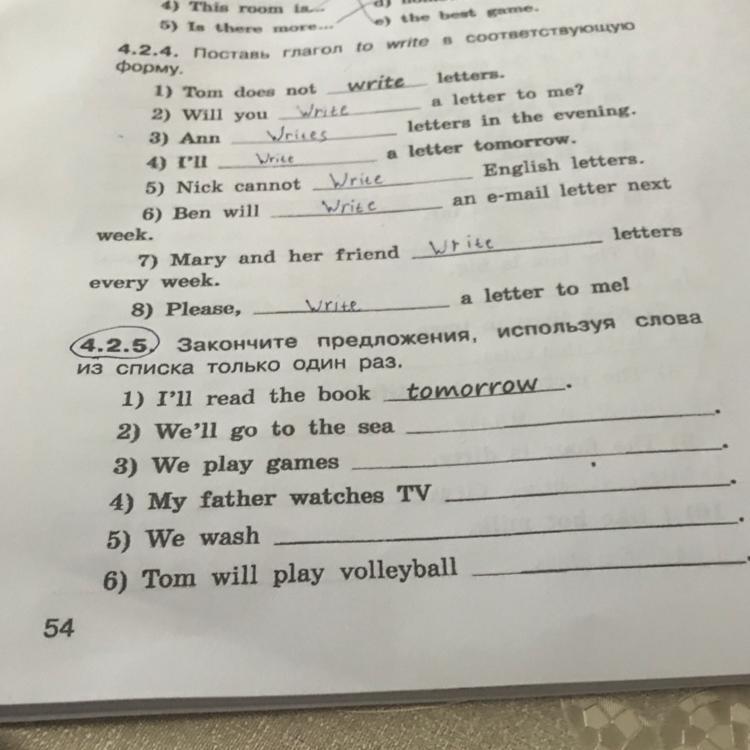 4) This room is...
5) Is there more...
e) the best game.
4.2.4. Поставь глагол to write в соответствующую
форму.
1) Tom does not write letters.
2) Will you write a letter to me?
3) Ann writes letters in the evening.
4) I'll write a letter tomorrow.
5) Nick cannot write English letters.
6) Ben will write an e-mail letter next
week.
7) Mary and her friend write letters
every week.
8) Please, write a letter to me!
4.2.5. Закончите предложения, используя слова
из списка только один раз.
1) I'll read the book tomorrow.
2) We'll go to the sea .
3) We play games .
4) My father watches TV .
5) We wash .
6) Tom will play volleyball .
54